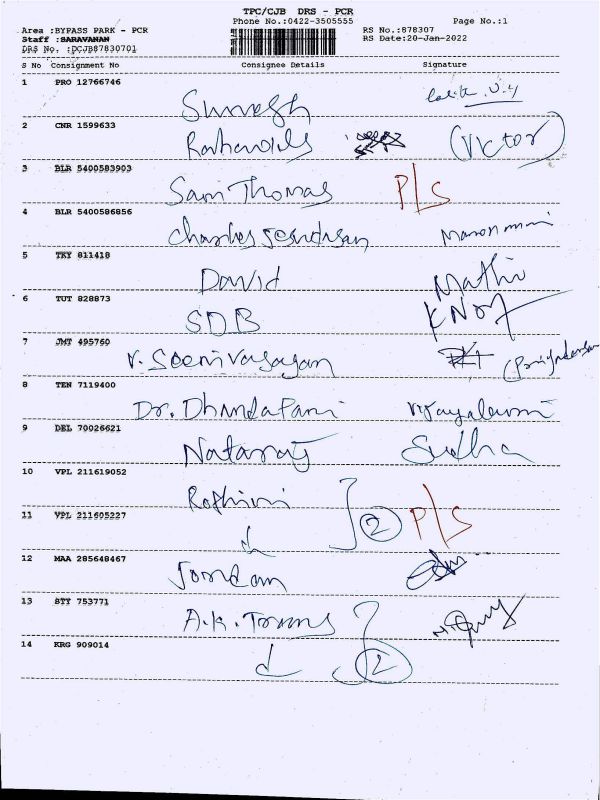 TPC/CJB DRS - PCR
Phone No.:0422-3505555 Page No.:1
Area :BYPASS PARK - PCR RS No.:878307
Staff :SARAVANAN RS Date:20-Jan-2022
DRS No. :DCJB87830701
S No Consignment No Consignee Details Signature
1 PRO 12766746 Suresh
2 CNR 1599633 (Victor)
3 BLR 5400583903 Sam Thomas P/S
4 BLR 5400586856 Charles Jesudasan
5 TKY 811418 David Mathi
6 TUT 828873 SDB
7 JMT 495760 V. Seenivasagan
8 TEN 7119400 Dr. Dhandapani Vijayalaxmi
9 DEL 70026621 Nataraj Sudha
10 VPL 211619052 Roshini
11 VPL 211605227 2 P/S
12 MAA 285648467 Jordan
13 STY 753771 A.K. Trans
14 KRG 909014 2